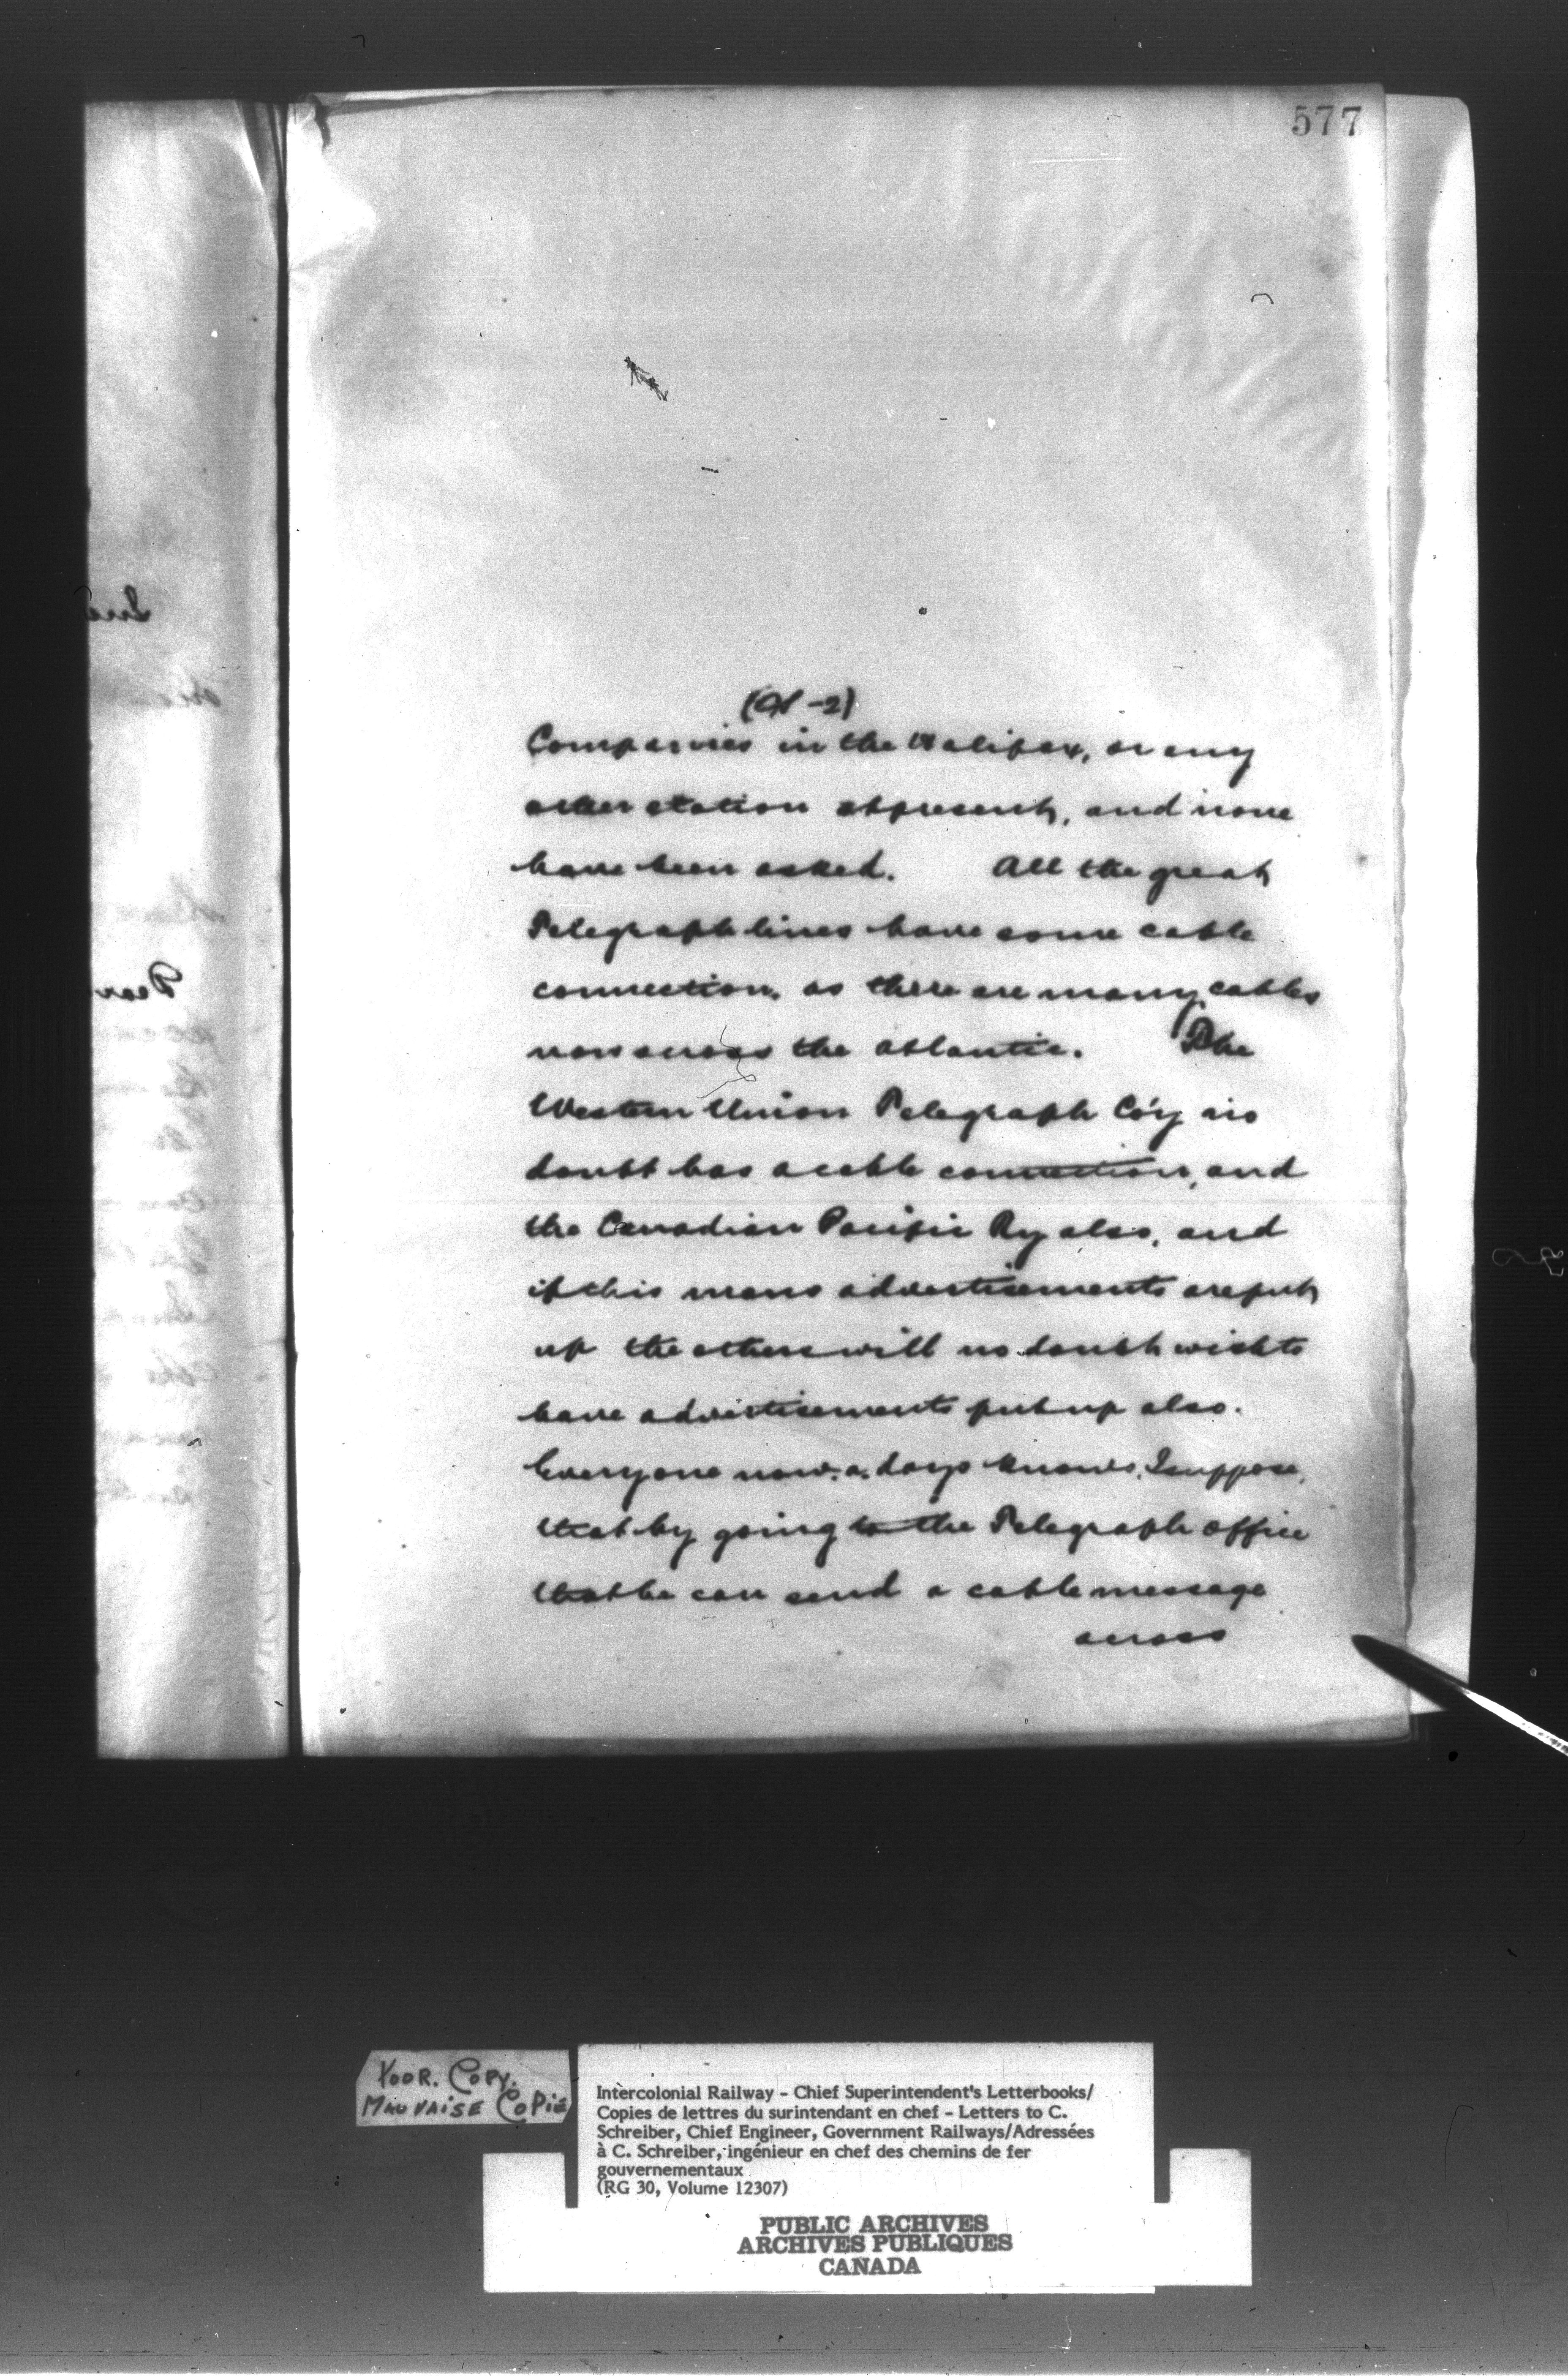 577
Companies in the Halifax, or any
other station at present, and none
have been asked. All the great
Telegraph lines have some cable
connection, as there are many cables
now across the Atlantic. The
Western Union Telegraph Co'y no
doubt has a cable connection, and
the Canadian Pacific Ry also, and
if this mans advertisements are put
up the others will no doubt wish to
have advertisements put up also.
Everyone now-a-days knows, I suppose,
that by going to the Telegraph office
that he can send a cable message
across
POOR. COPY.
MAUVAISE COPIE
Intercolonial Railway - Chief Superintendent's Letterbooks/
Copies de lettres du surintendant en chef - Letters to C.
Schreiber, Chief Engineer, Government Railways/Adressées
à C. Schreiber, ingénieur en chef des chemins de fer
gouvernementaux
(RG 30, Volume 12307)
PUBLIC ARCHIVES
ARCHIVES PUBLIQUES
CANADA